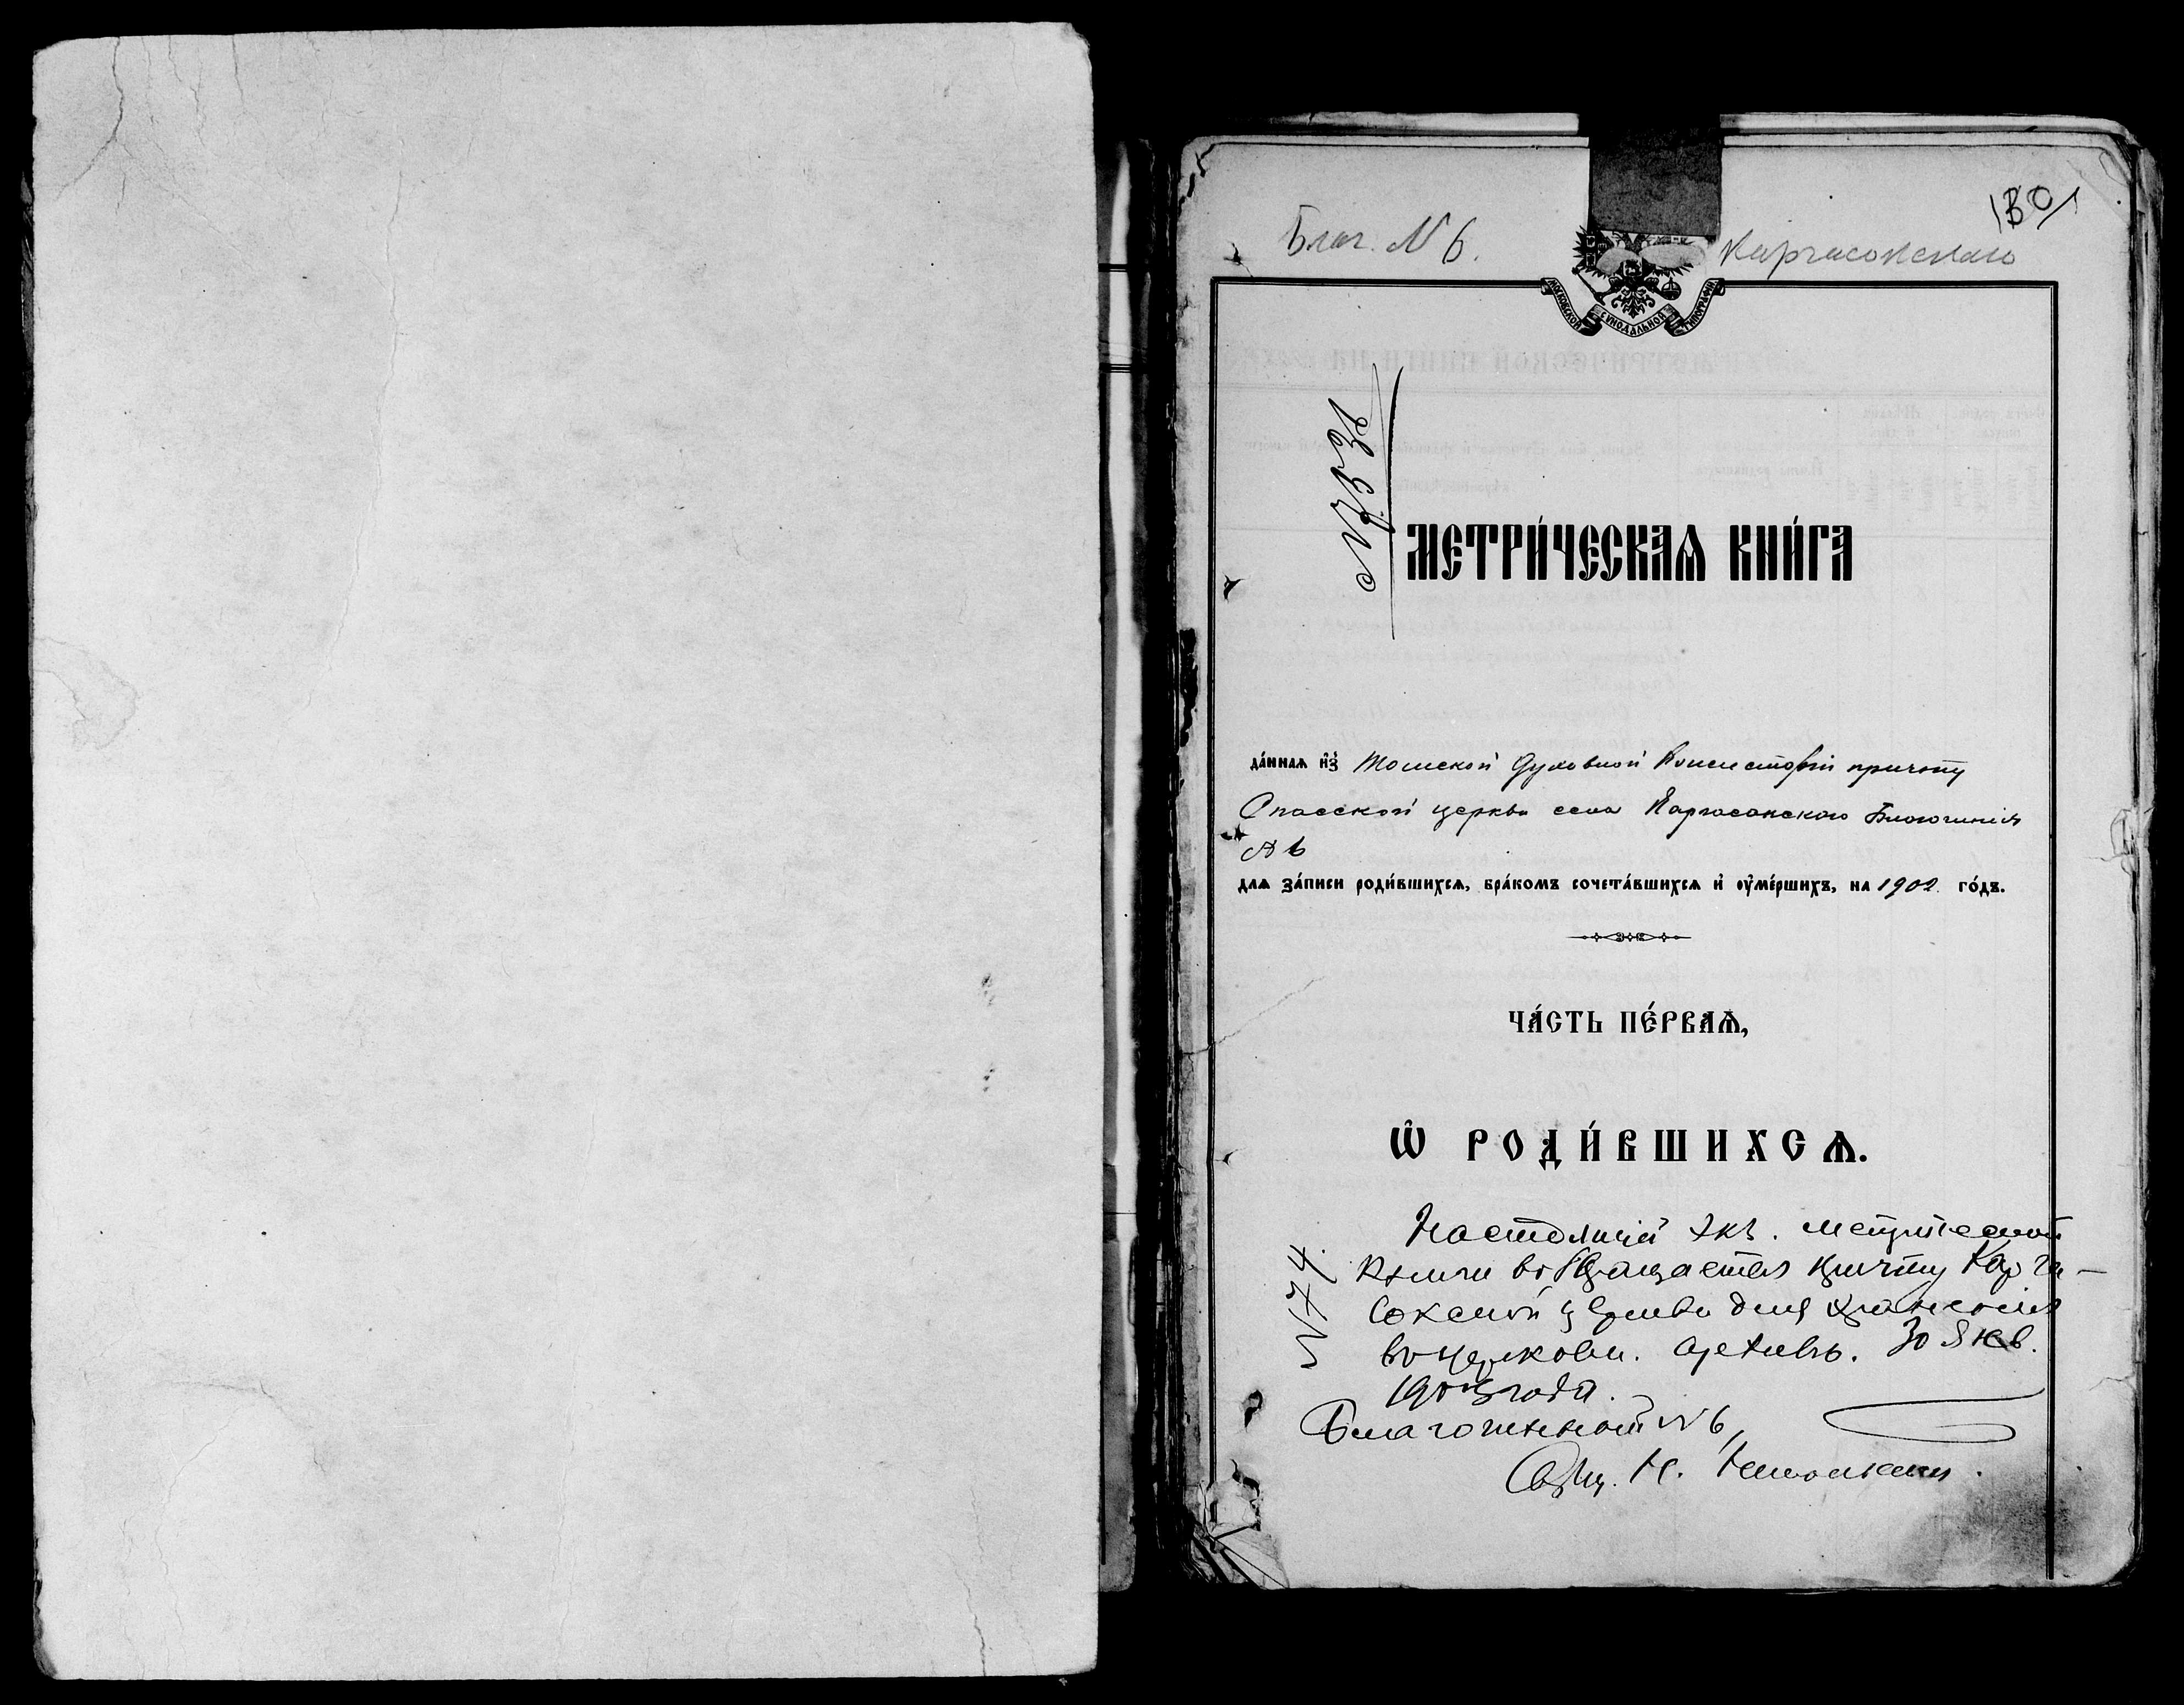 Благ. № 6.
Каргасокскаго
МОСКОВСКОЙ СѴНОДАЛЬНОЙ ТИПОГРАФІИ
МЕТРИ́ЧЕСКАѦ КНИ́ГА
да́ннаѧ и҆з̾ Томской Духовной Консисторіи причту
Спасской церкви села Каргасокскаго Благочинія
№ 6
длѧ за́писи роди́вшихсѧ, бра́комъ сочета́вшихсѧ и҆ ᲂу҆ме́ршихъ, на 1902 го́дъ.
ЧА́СТЬ ПЕ́РВАѦ,
Ѽ РОДИ́ВШИХСѦ.
№ 74.
Настоящій экз. метрической
книги возвращается причту Карга-
сокской церкви для храненія
въ церковн. архивъ. 30 Янв.
1903 года.
Благочинный № 6,
Свящ. Н.